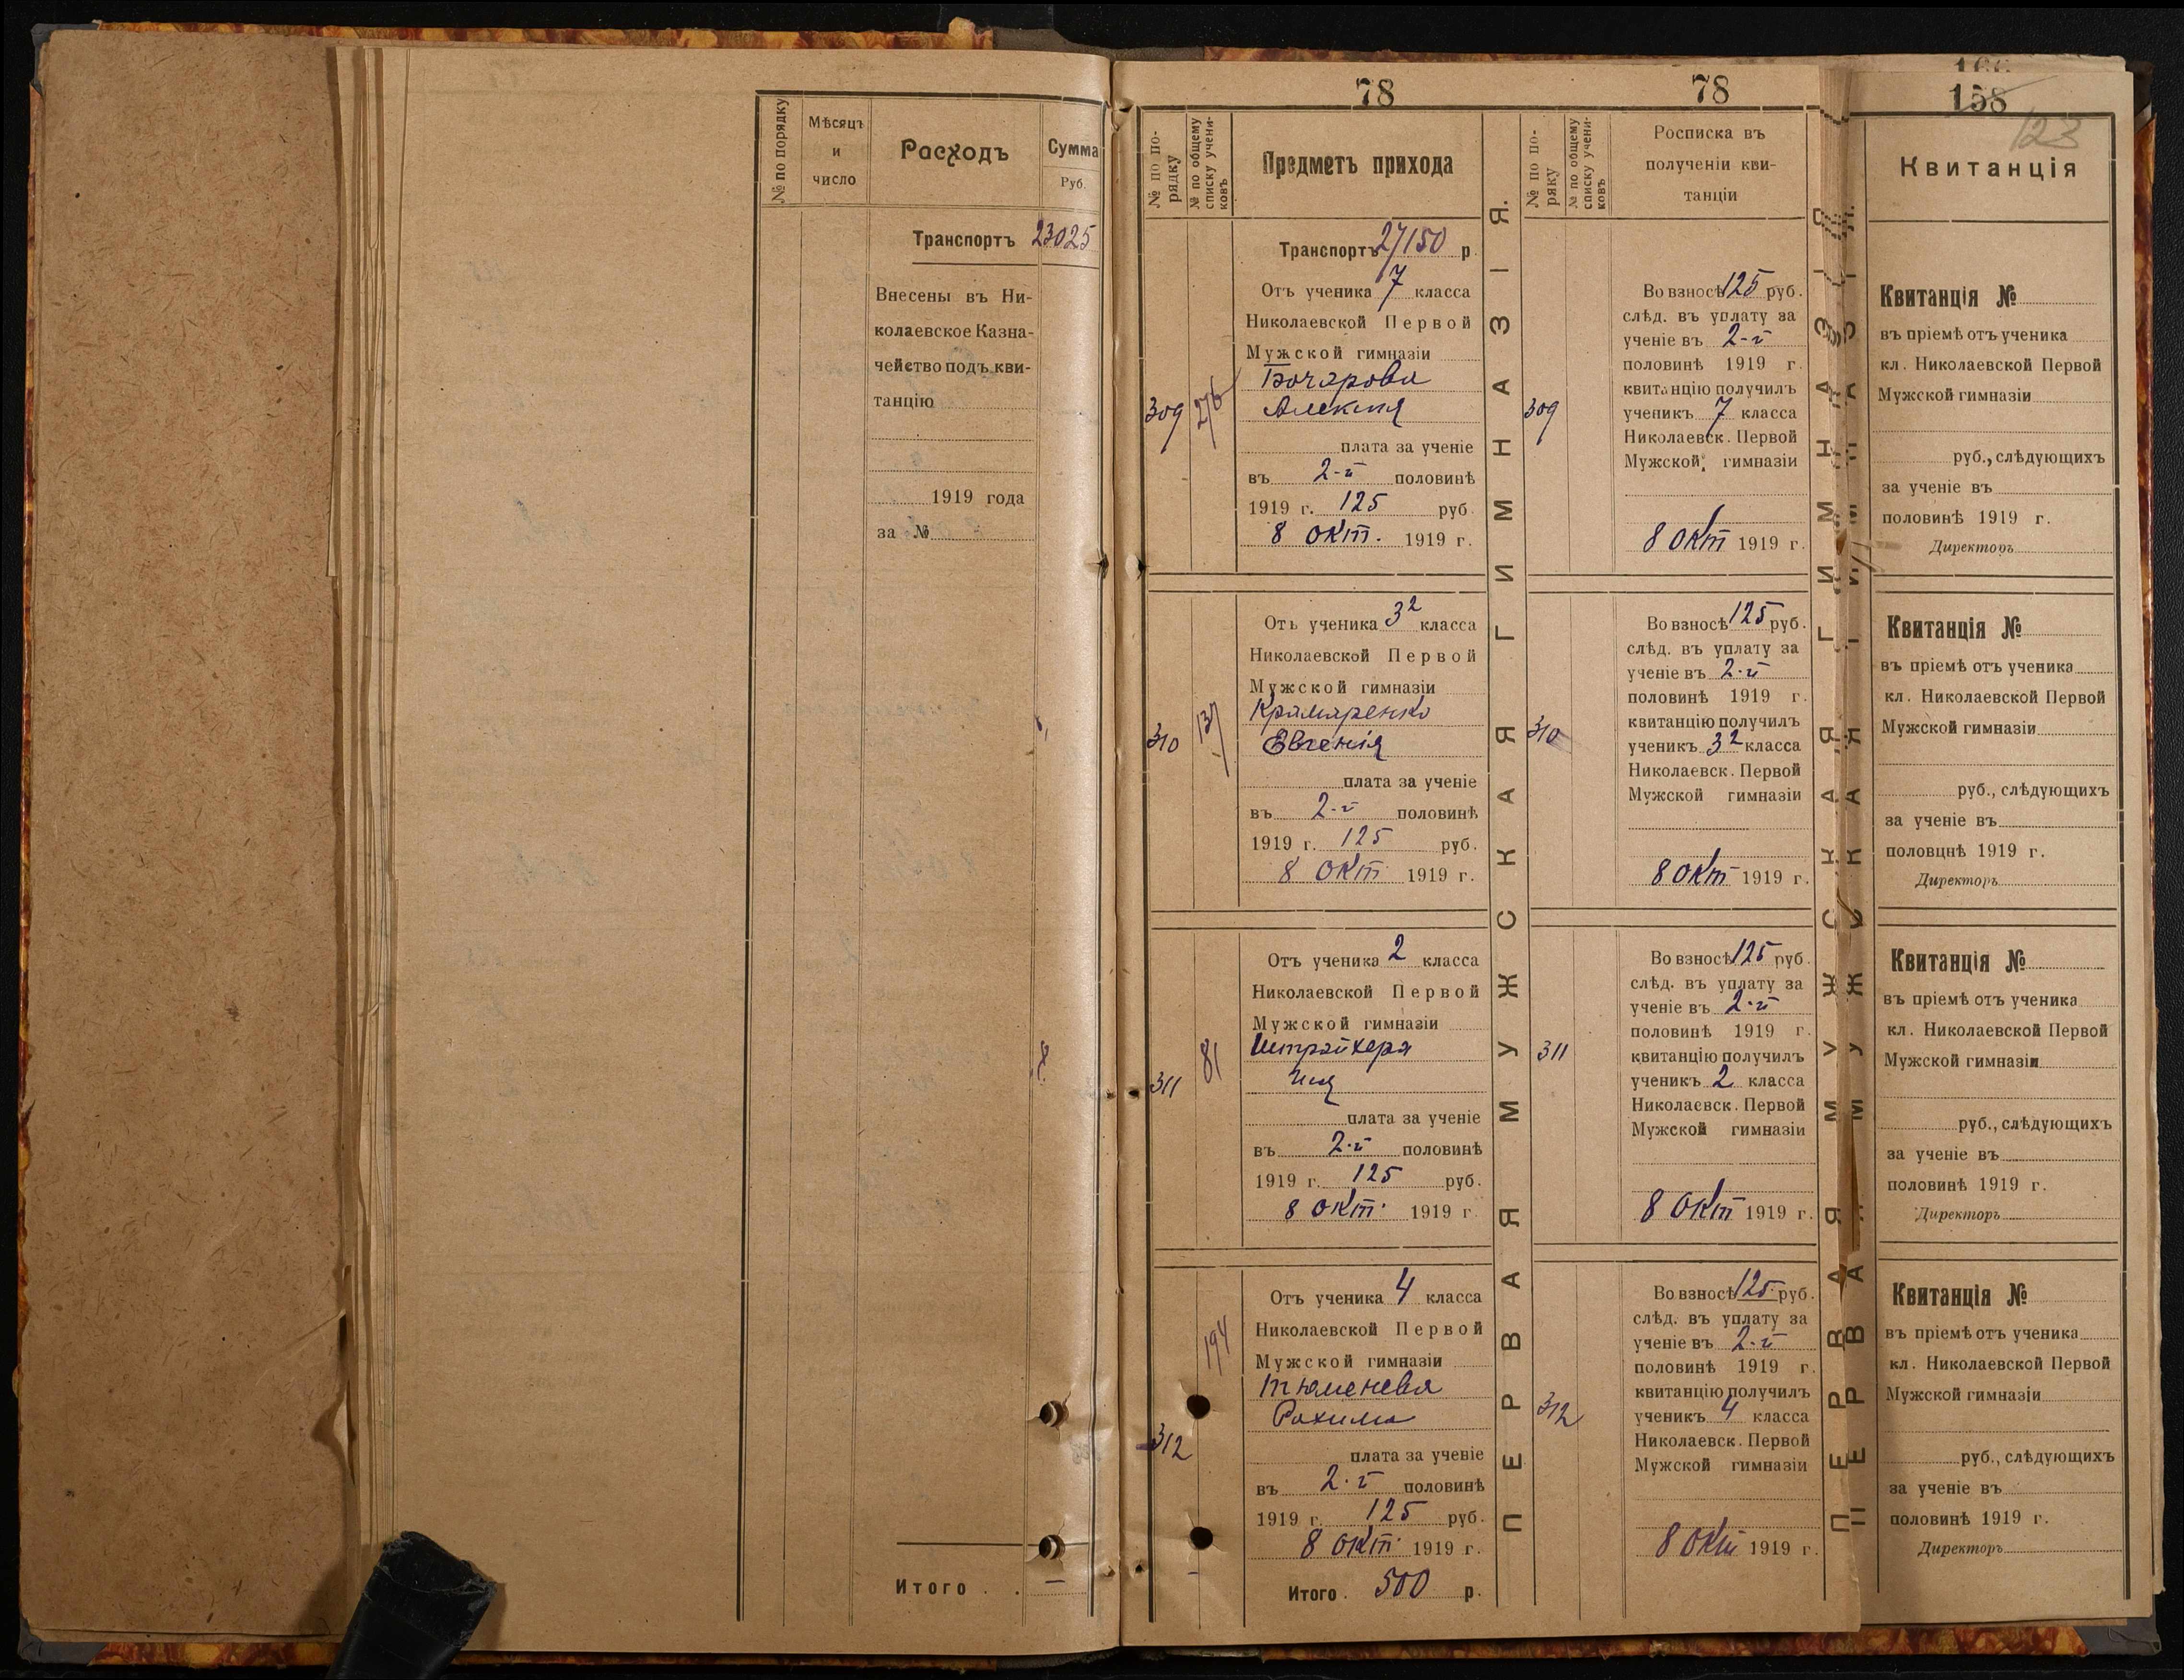 № по порядку
Мѣсяцъ
и
число
Расходъ
Сумма
Руб.
Транспортъ 23025
Внесены въ Ни-
колаевское Казна-
чейство подъ кви-
танцію
1919 года
за №
Итого . .
78
№ по по-
рядку
№ по общему
списку учени-
ковъ
Предметъ прихода
Транспортъ 27150 р
309
276
Отъ ученика 7 класса
Николаевской Первой
Мужской гимназіи
Бочарова
Алексѣя
плата за ученіе
въ 2-й половинѣ
1919 г. 125 руб.
8 окт. 1919 г.
310
137
Отъ ученика 3² класса
Николаевской Первой
Мужской гимназіи
Крамаренко
Евгенія
плата за ученіе
въ 2-й половинѣ
1919 г. 125 руб.
8 окт 1919 г.
311
81
Отъ ученика 2 класса
Николаевской Первой
Мужской гимназіи
Штрайхера
плата за ученіе
въ 2-й половинѣ
1919 г. 125 руб.
8 окт. 1919 г
312
194
Отъ ученика 4 класса
Николаевской Первой
Мужской гимназіи
Тюменева
Рахима
плата за ученіе
въ 2-й половинѣ
1919 г. 125 руб.
8 окт. 1919 г.
Итого . 500 р.
ПЕРВАЯ МУЖСКАЯ ГИМНАЗІЯ.
78
№ по по-
ряку
№ по общему
списку учени-
ковъ
Росписка въ
полученіи кви-
танціи
309
Во взносѣ 125 руб.
слѣд. въ уплату за
ученіе въ 2-й
половинѣ 1919 г.
квитанцію получилъ
ученикъ 7 класса
Николаевск. Первой
Мужской гимназіи
8 окт 1919 г.
310
Во взносѣ 125 руб.
слѣд. въ уплату за
ученіе въ 2-й
половинѣ 1919 г.
квитанцію получилъ
ученикъ 3² класса
Николаевск. Первой
Мужской гимназіи
8 окт 1919 г.
311
Во взносѣ 125 руб.
слѣд. въ уплату за
ученіе въ 2-й
половинѣ 1919 г.
квитанцію получилъ
ученикъ 2 класса
Николаевск. Первой
Мужской гимназіи
8 окт 1919 г.
312
Во взносѣ 125 руб.
слѣд. въ уплату за
ученіе въ 2-й
половинѣ 1919 г.
квитанцію получилъ
ученикъ 4 класса
Николаевск. Первой
Мужской гимназіи
8 окт 1919 г.
ПЕРВАЯ МУЖСКАЯ ГИМНАЗІЯ
158
123
Квитанція
Квитанція №
въ пріемѣ отъ ученика
кл. Николаевской Первой
Мужской гимназіи
руб., слѣдующихъ
за ученіе въ
половинѣ 1919 г.
Директоръ
Квитанція №
въ пріемѣ отъ ученика
кл. Николаевской Первой
Мужской гимназіи
руб., слѣдующихъ
за ученіе въ
половцнѣ 1919 г.
Директоръ
Квитанція №
въ пріемѣ отъ ученика
кл. Николаевской Первой
Мужской гимназіи
руб., слѣдующихъ
за ученіе въ
половинѣ 1919 г.
Директоръ
Квитанція №
въ пріемѣ отъ ученика
кл. Николаевской Первой
Мужской гимназіи
руб., слѣдующихъ
за ученіе въ
половинѣ 1919 г.
Директоръ